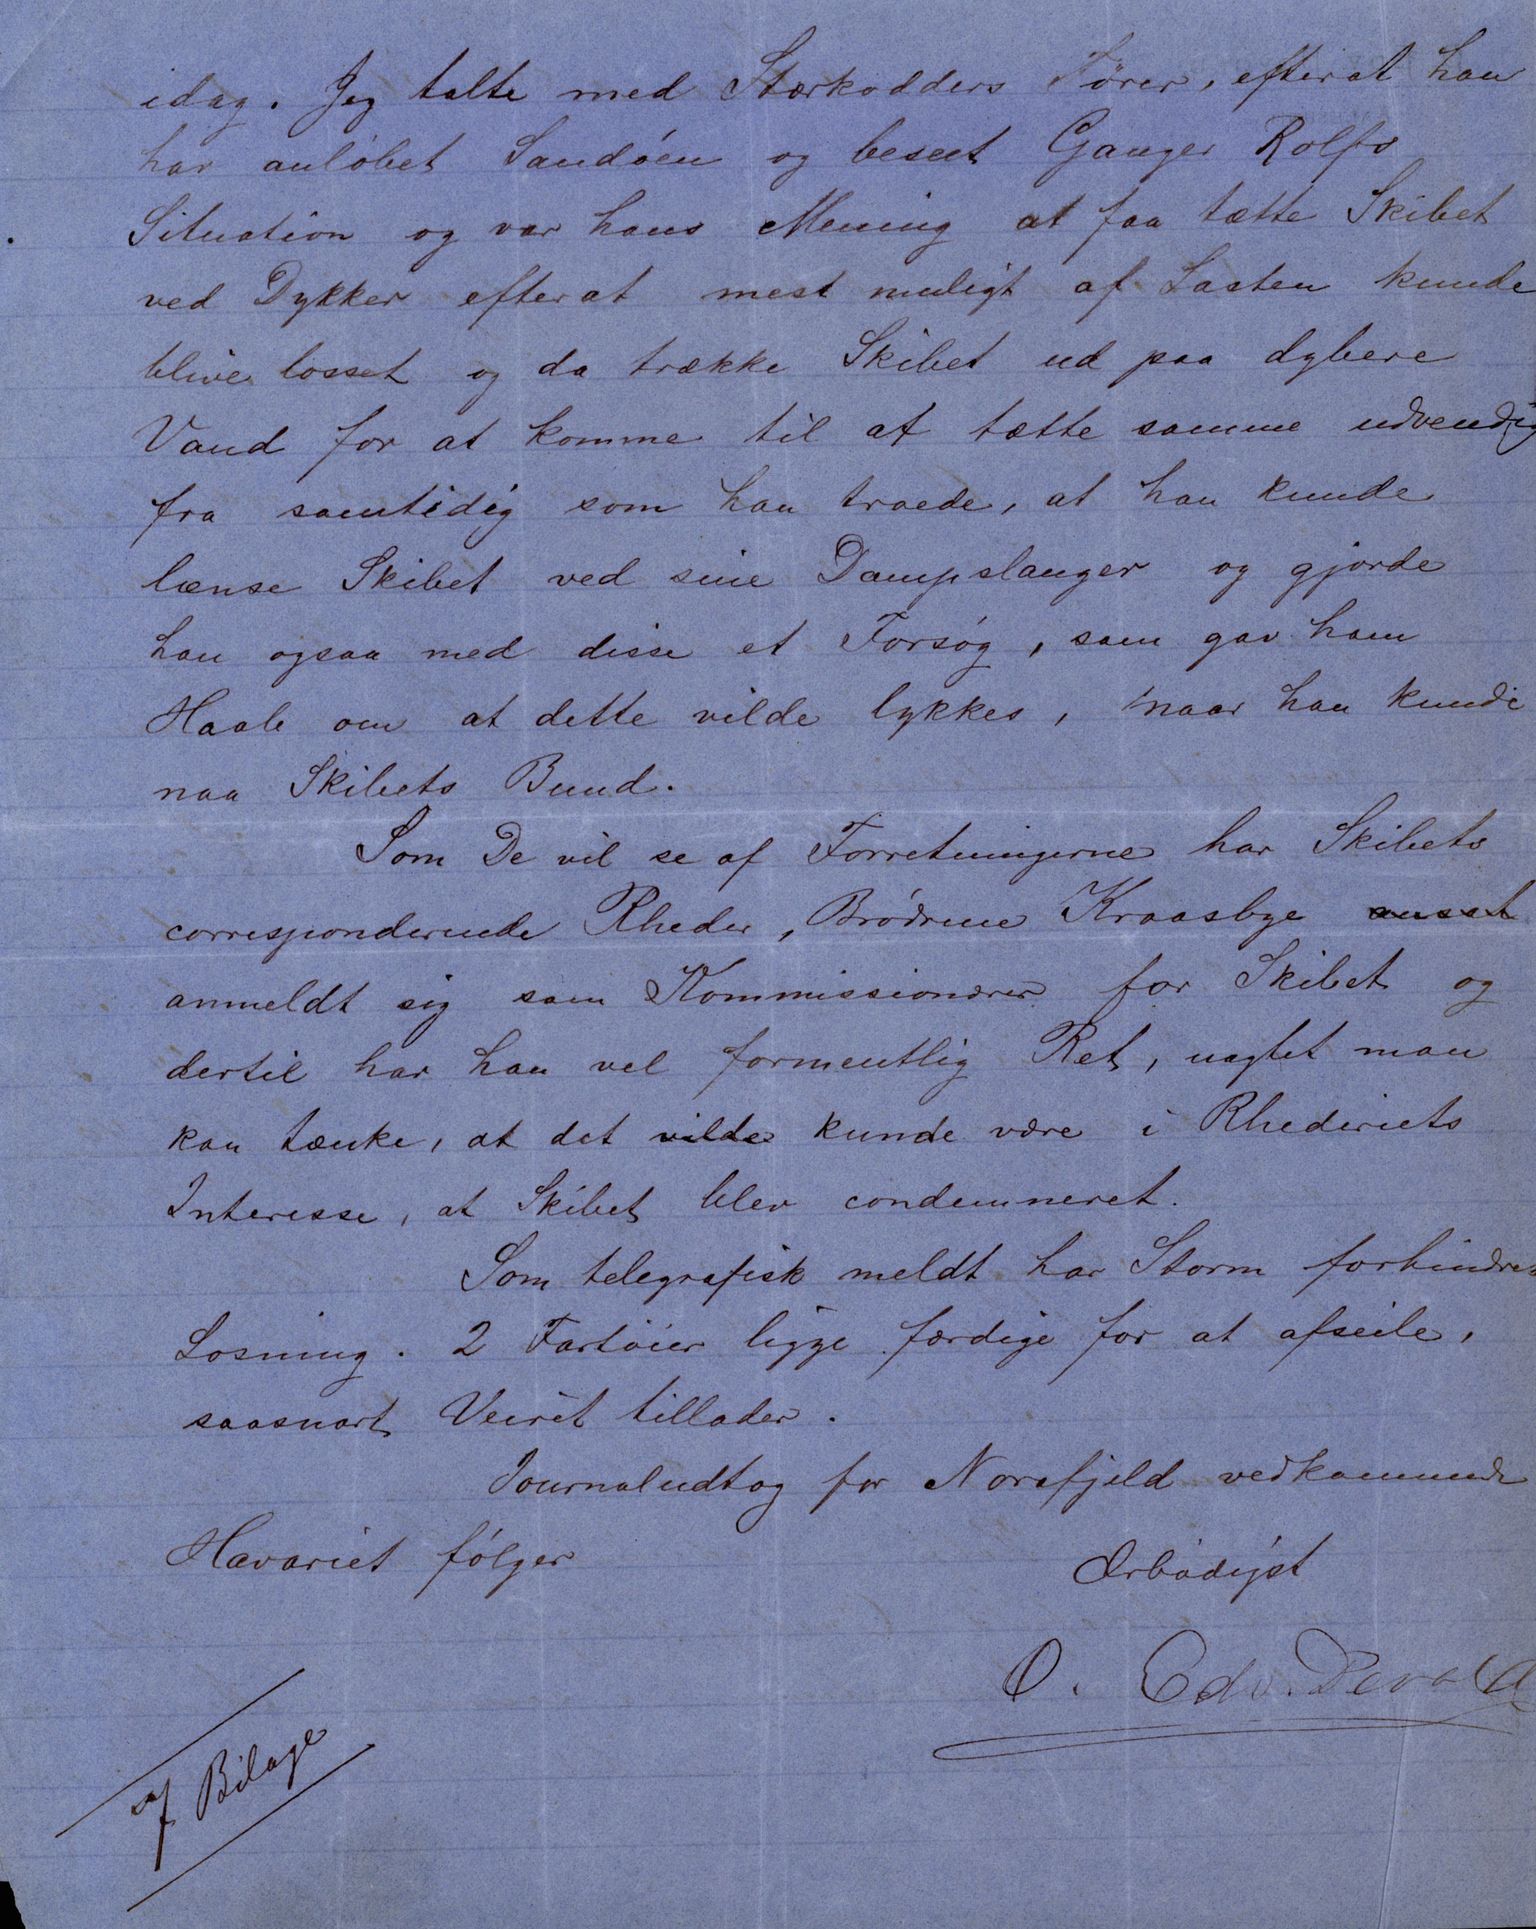 idag. Jeg talte med Stærkodders Fører, efterat han
har anløbet Sandøen og beseet Ganger Rolfs
Situation og var hans Mening at faa tætte Skibet
ved Dykker efterat mest muligt af Lasten kunde
blive losset og da trække Skibet ud paa dybere
Vand for at komme til at tætte samme udvendig
fra samtidig som han troede, at han kunde
lænse Skibet ved sine Dampslanger og gjorde
han ogsaa med disse et Forsøg, som gav ham
Haab om at dette vilde lykkes, naar han kunde
naa Skibets Bund.
Som De vil se af Forretningerne har Skibets
corresponderende Rheder, Brødrene Kraasbye
anmeldt sig som Kommissionærer for Skibet og
dertil har han vel formentlig Ret, uagtet man
kan tænke, at det vilde kunde være i Rhederiets
Interesse, at Skibet blev condemneret.
Som telegrafisk meldt har Storm forhindret
Losning. 2 Fartøier ligge færdige for at afseile,
saasnart Veiret tillader.
Journaludtog for Norafjeld vedkommende
Havariet følger
Ærbødigst
O. Edv. Devold
7 Bilage